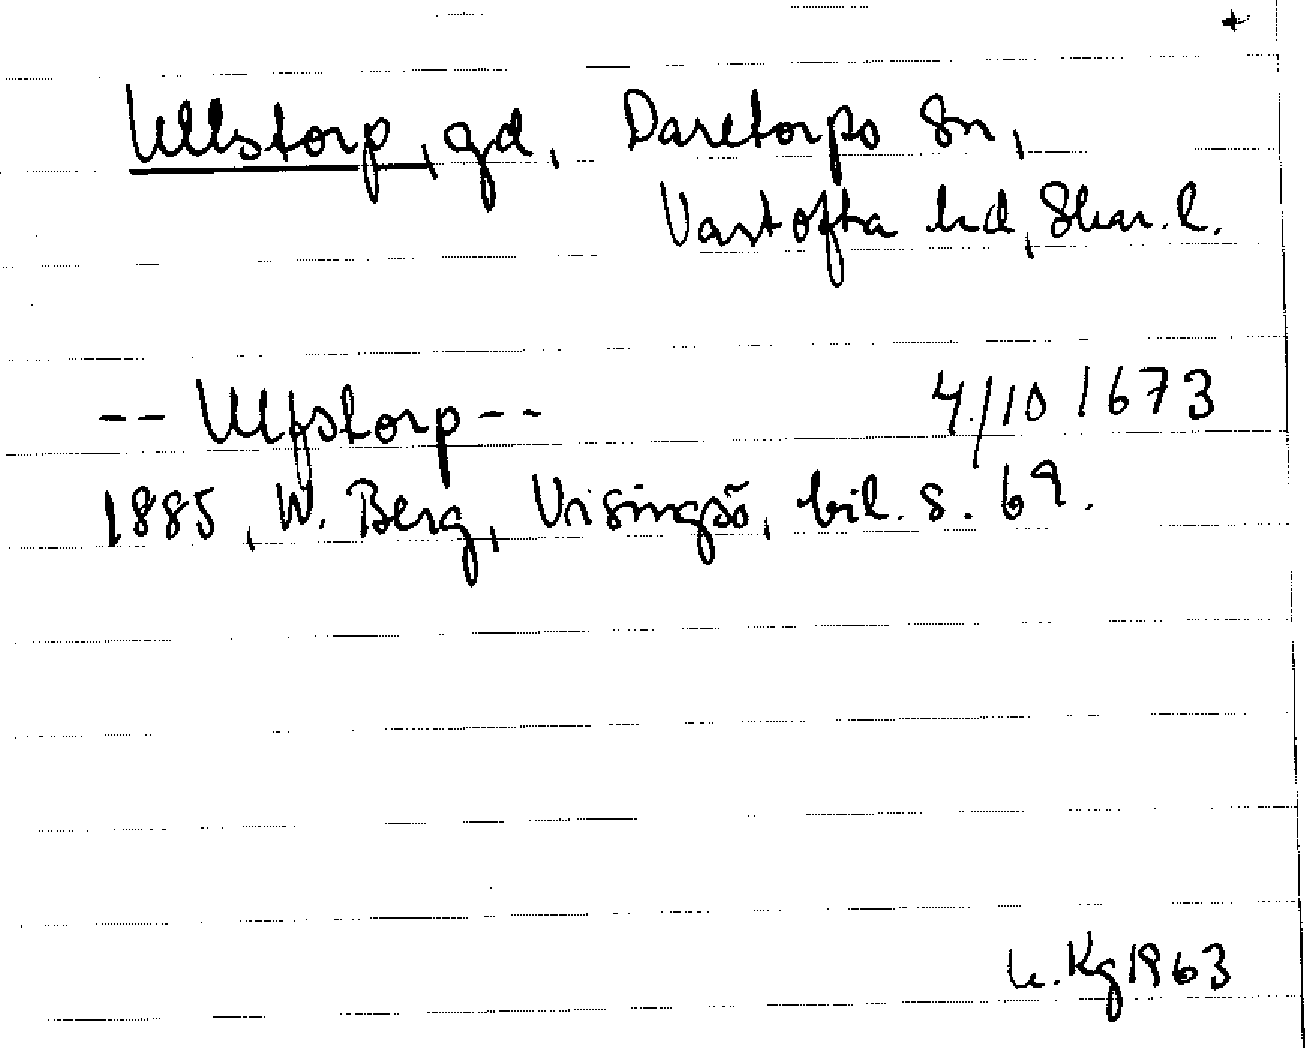 +
Ullstorp, gd, Daretorps sn,
Vartofta hd, Skar. l.
-- Ulfstorp -- 4/10 1673
1885, W. Berg, Visingsö, bil. s. 69.
Kg 1963